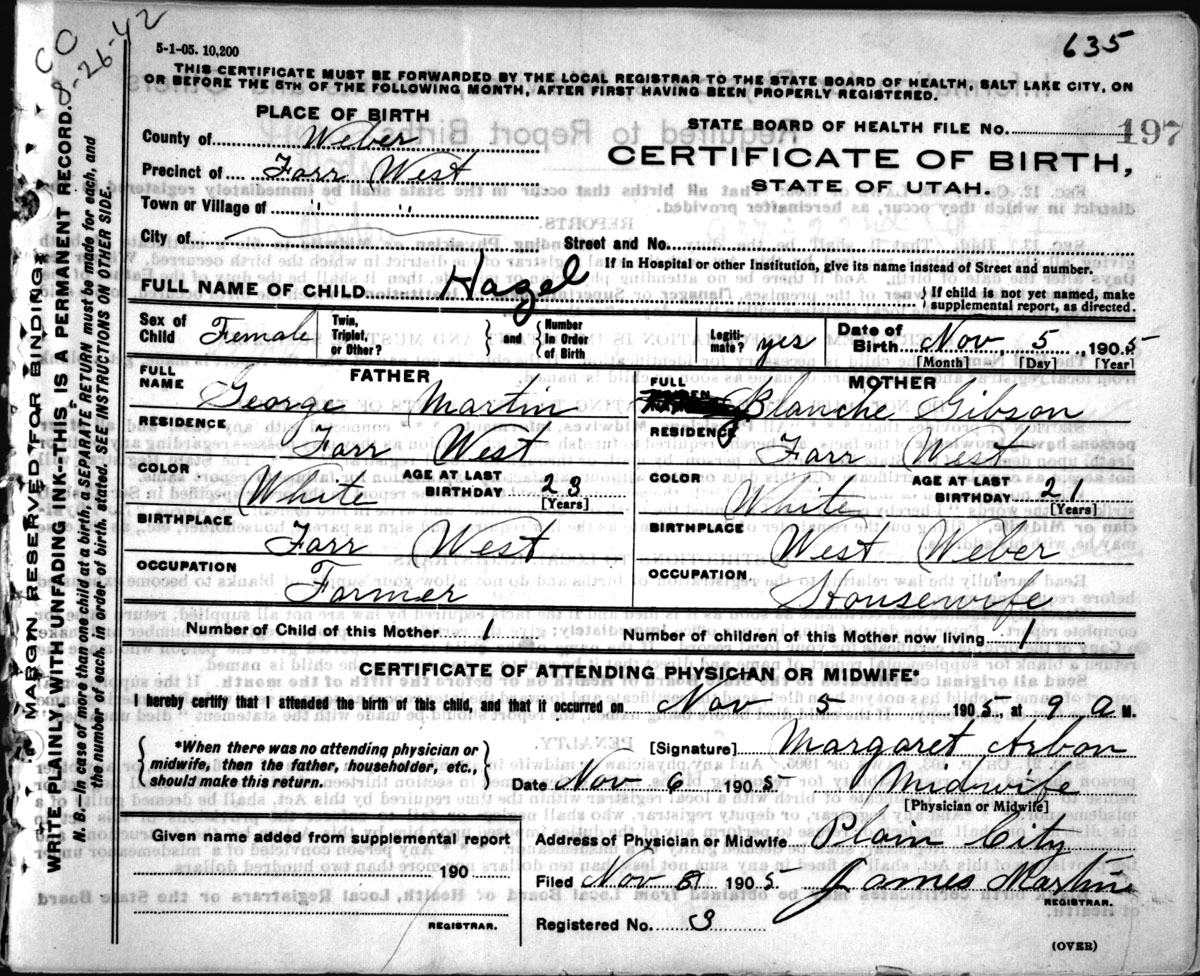 635
5-1-05. 10,200
THIS CERTIFICATE MUST BE FORWARDED BY THE LOCAL REGISTRAR TO THE STATE BOARD OF HEALTH, SALT LAKE CITY, ON
OR BEFORE THE 5TH OF THE FOLLOWING MONTH, AFTER FIRST HAVING BEEN PROPERLY REGISTERED.
CO
8-26-42
MARGIN RESERVED FOR BINDING
WRITE PLAINLY WITH UNFADING INK--THIS IS A PERMANENT RECORD.
N. B.--In case of more than one child at a birth, a SEPARATE RETURN must be made for each, and
the number of each, in order of birth, stated. SEE INSTRUCTIONS ON OTHER SIDE.
PLACE OF BIRTH
County of Weber
Precinct of Farr West
Town or Village of " "
City of
STATE BOARD OF HEALTH FILE NO. 197
CERTIFICATE OF BIRTH,
STATE OF UTAH.
Street and No.
If in Hospital or other Institution, give its name instead of Street and number.
FULL NAME OF CHILD Hazel
{If child is not yet named, make
supplemental report, as directed.
Sex of Child Female
Twin, Triplet, or Other?
{and} Number In Order of Birth
Legitimate? yes
Date of Birth Nov, 5, 1905
[Month] [Day] [Year]
FATHER
FULL NAME George Martin
RESIDENCE Farr West
COLOR White
AGE AT LAST BIRTHDAY 23
[Years]
BIRTHPLACE Farr West
OCCUPATION Farmer
MOTHER
FULL Blanche Gibson
RESIDENCE Farr West
COLOR White
AGE AT LAST BIRTHDAY 21
[Years]
BIRTHPLACE West Weber
OCCUPATION Housewife
Number of Child of this Mother 1
Number of children of this Mother now living 1
CERTIFICATE OF ATTENDING PHYSICIAN OR MIDWIFE*
I hereby certify that I attended the birth of this child, and that it occurred on Nov 5 1905, at 9 a M.
{*When there was no attending physician or
midwife, then the father, householder, etc.,
should make this return.}
[Signature] Margaret Arbon
Date Nov 6 1905 Midwife
[Physician or Midwife]
Given name added from supplemental report
190
REGISTRAR.
Address of Physician or Midwife Plain City
Filed Nov 1905 James Martin
REGISTRAR.
Registered No. 3
(OVER)